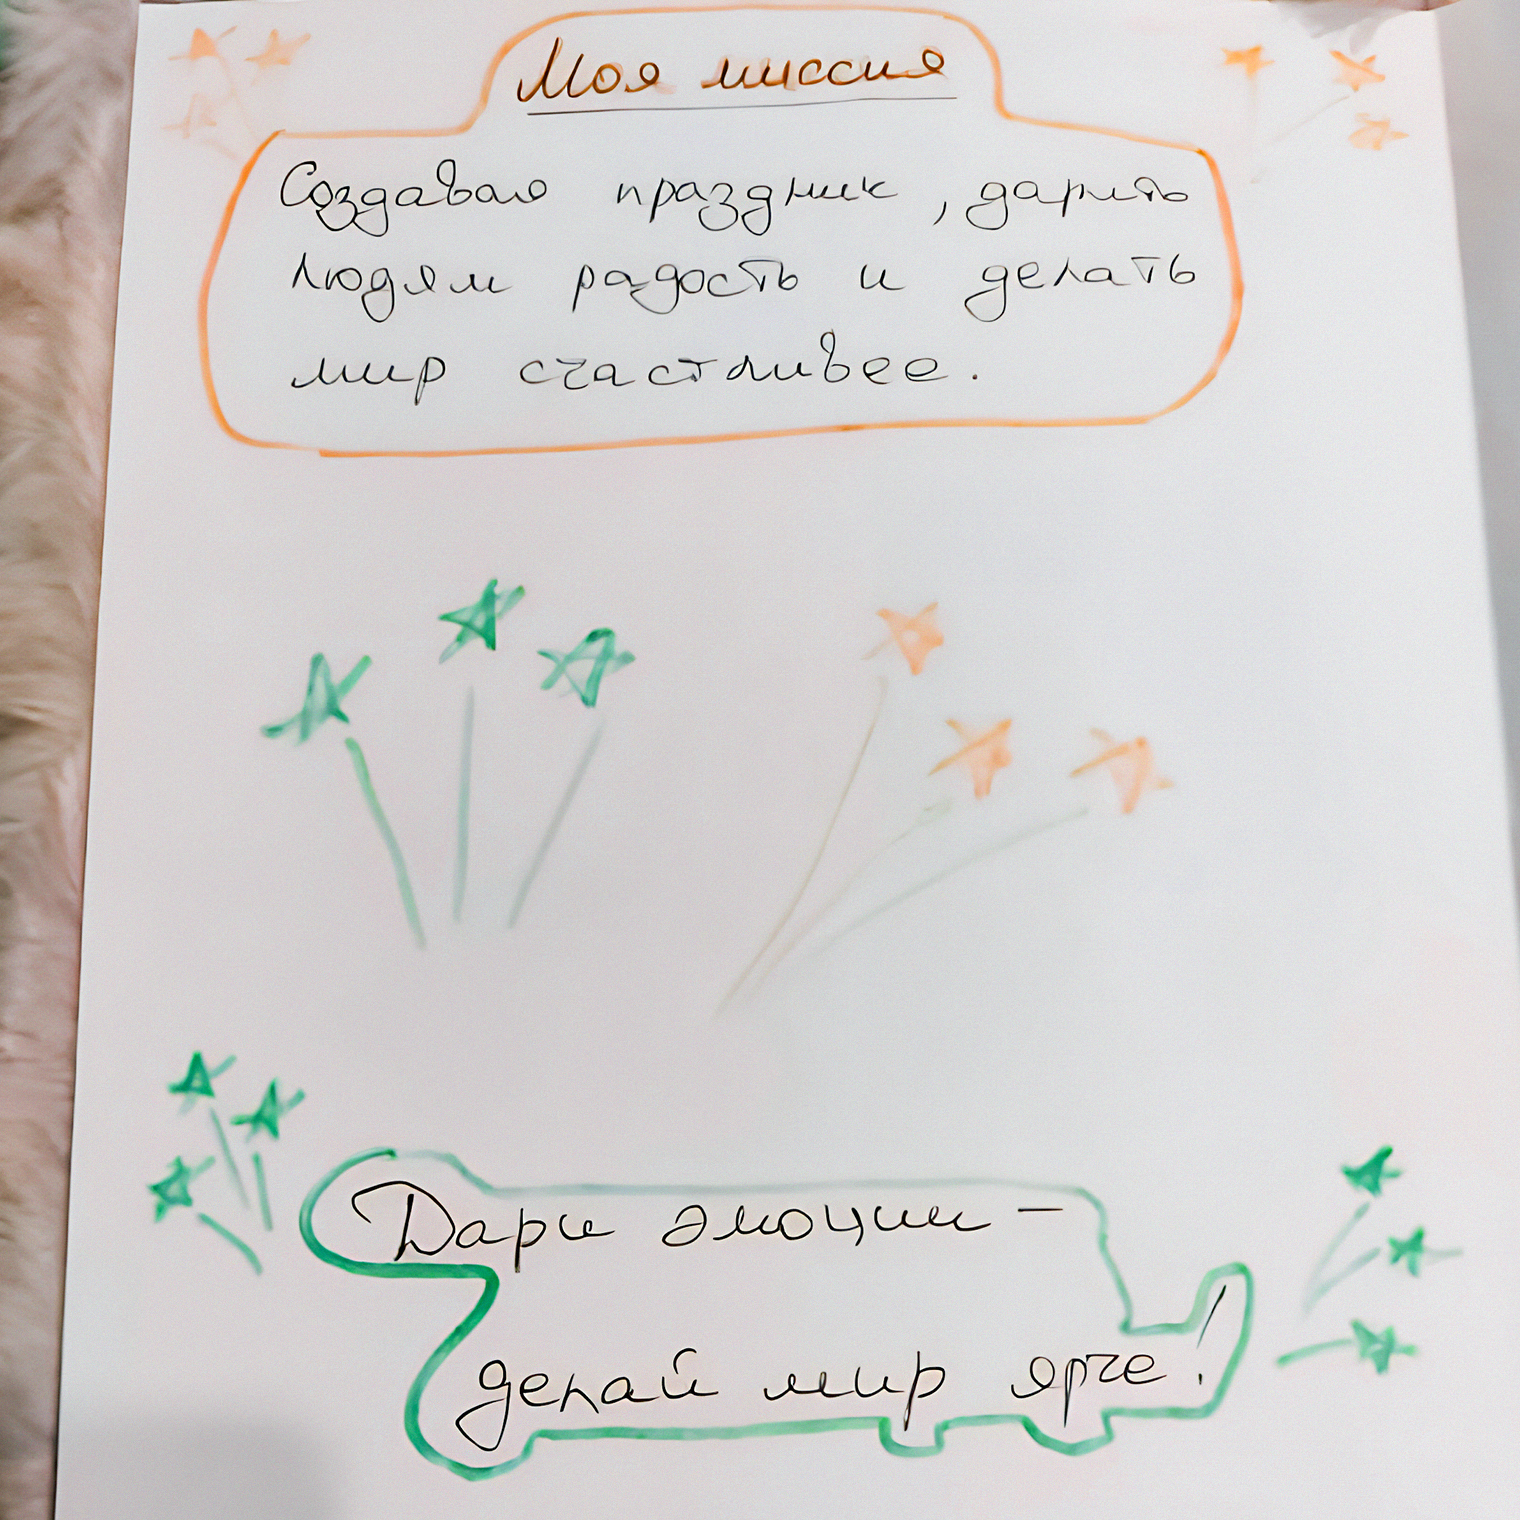 Моя миссия
Создавая праздник, дарить
людям радость и делать
мир счастливее.
Дари эмоции –
делай мир ярче!